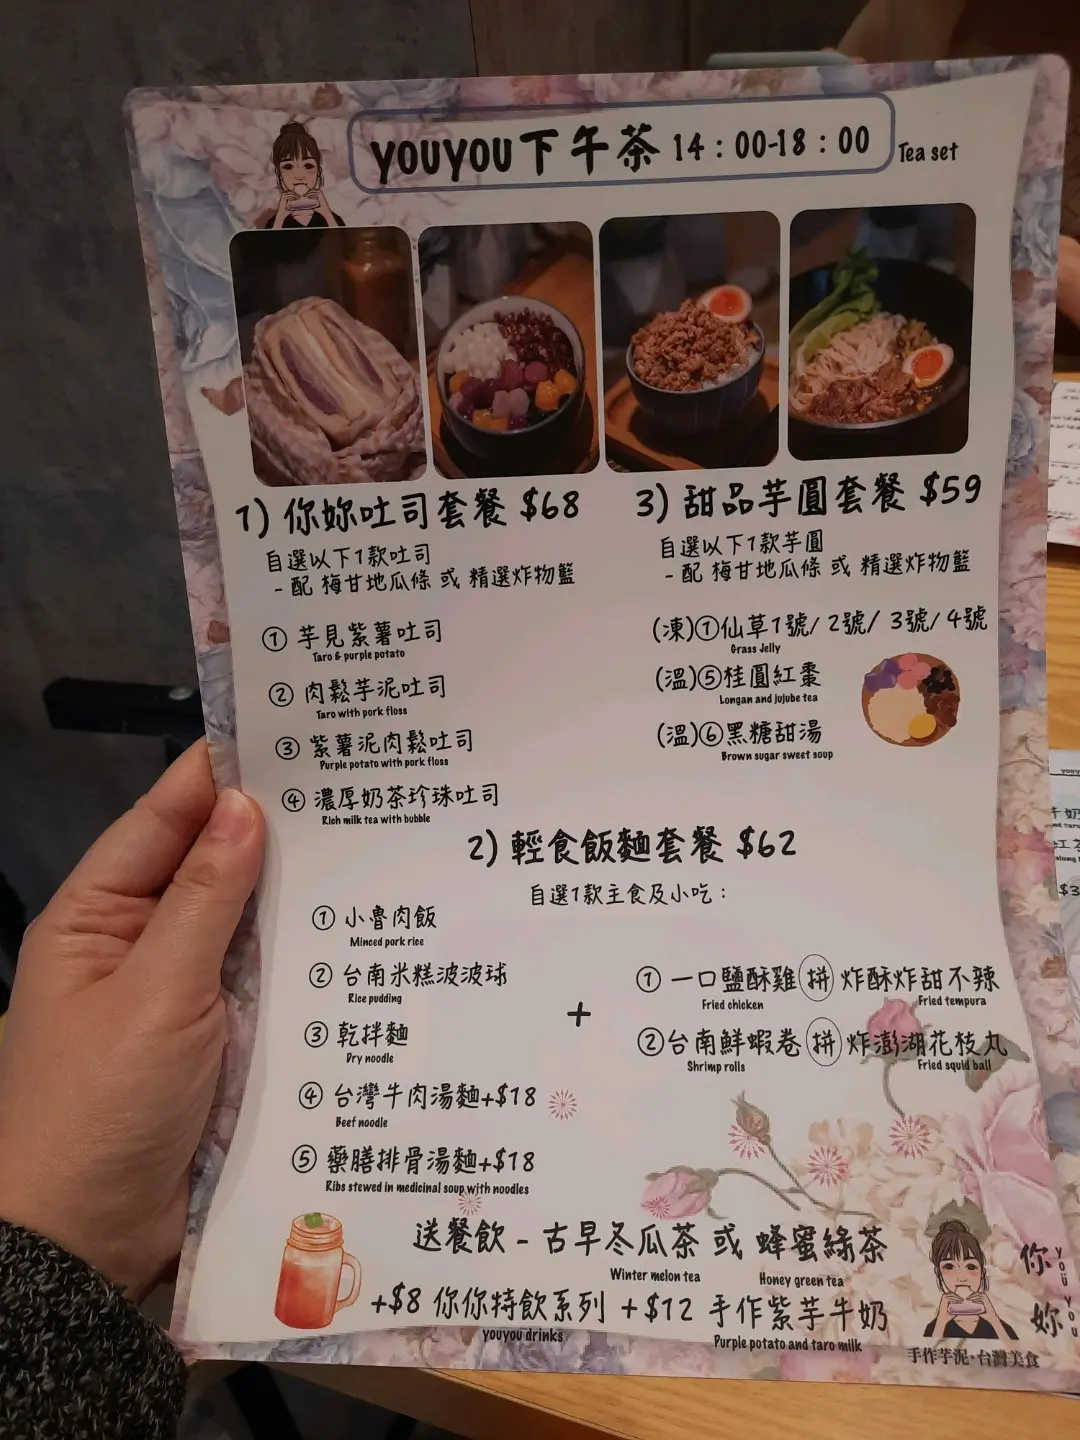 YOUYOU下午茶 14：00-18：00 Tea set
1) 你妳吐司套餐 $68
自選以下1款吐司
- 配 梅甘地瓜條 或 精選炸物籃
① 芋見紫薯吐司
Taro & purple potato
② 肉鬆芋泥吐司
Taro with pork floss
③ 紫薯泥肉鬆吐司
Purple potato with pork floss
④ 濃厚奶茶珍珠吐司
Rich milk tea with bubble
3) 甜品芋圓套餐 $59
自選以下1款芋圓
- 配 梅甘地瓜條 或 精選炸物籃
(凍)①仙草1號/ 2號/ 3號/ 4號
Grass Jelly
(溫)⑤桂圓紅棗
Longan and jujube tea
(溫)⑥黑糖甜湯
Brown sugar sweet soup
2) 輕食飯麵套餐 $62
自選1款主食及小吃：
① 小魯肉飯
Minced pork rice
② 台南米糕波波球
Rice pudding
③ 乾拌麵
Dry noodle
④ 台灣牛肉湯麵+$18
Beef noodle
⑤ 藥膳排骨湯麵+$18
Ribs stewed in medicinal soup with noodles
+
① 一口鹽酥雞 拼 炸酥炸甜不辣
Fried chicken Fried tempura
②台南鮮蝦卷 拼 炸澎湖花枝丸
Shrimp rolls Fried squid ball
送餐飲 - 古早冬瓜茶 或 蜂蜜綠茶
Winter melon tea Honey green tea
+$8 你你特飲系列 +$12 手作紫芋牛奶
youyou drinks Purple potato and taro milk
你妳
YOU YOU
手作芋泥·台灣美食